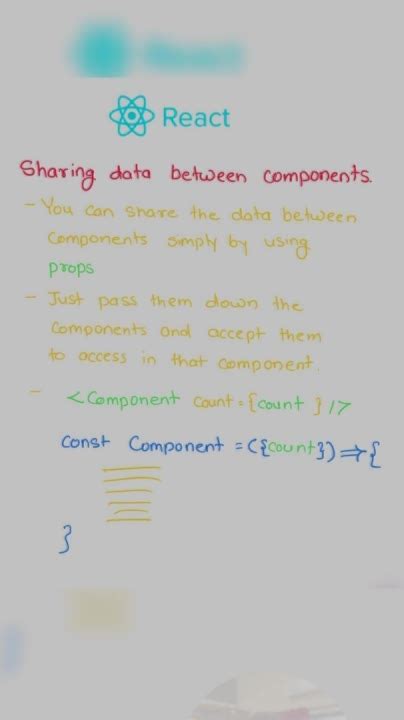 React
Sharing data between components.
- You can share the data between
components simply by using
props
- Just pass them down the
components and accept them
to access in that component.
- <Component count={count} />
const Component = ({count}) => {
}